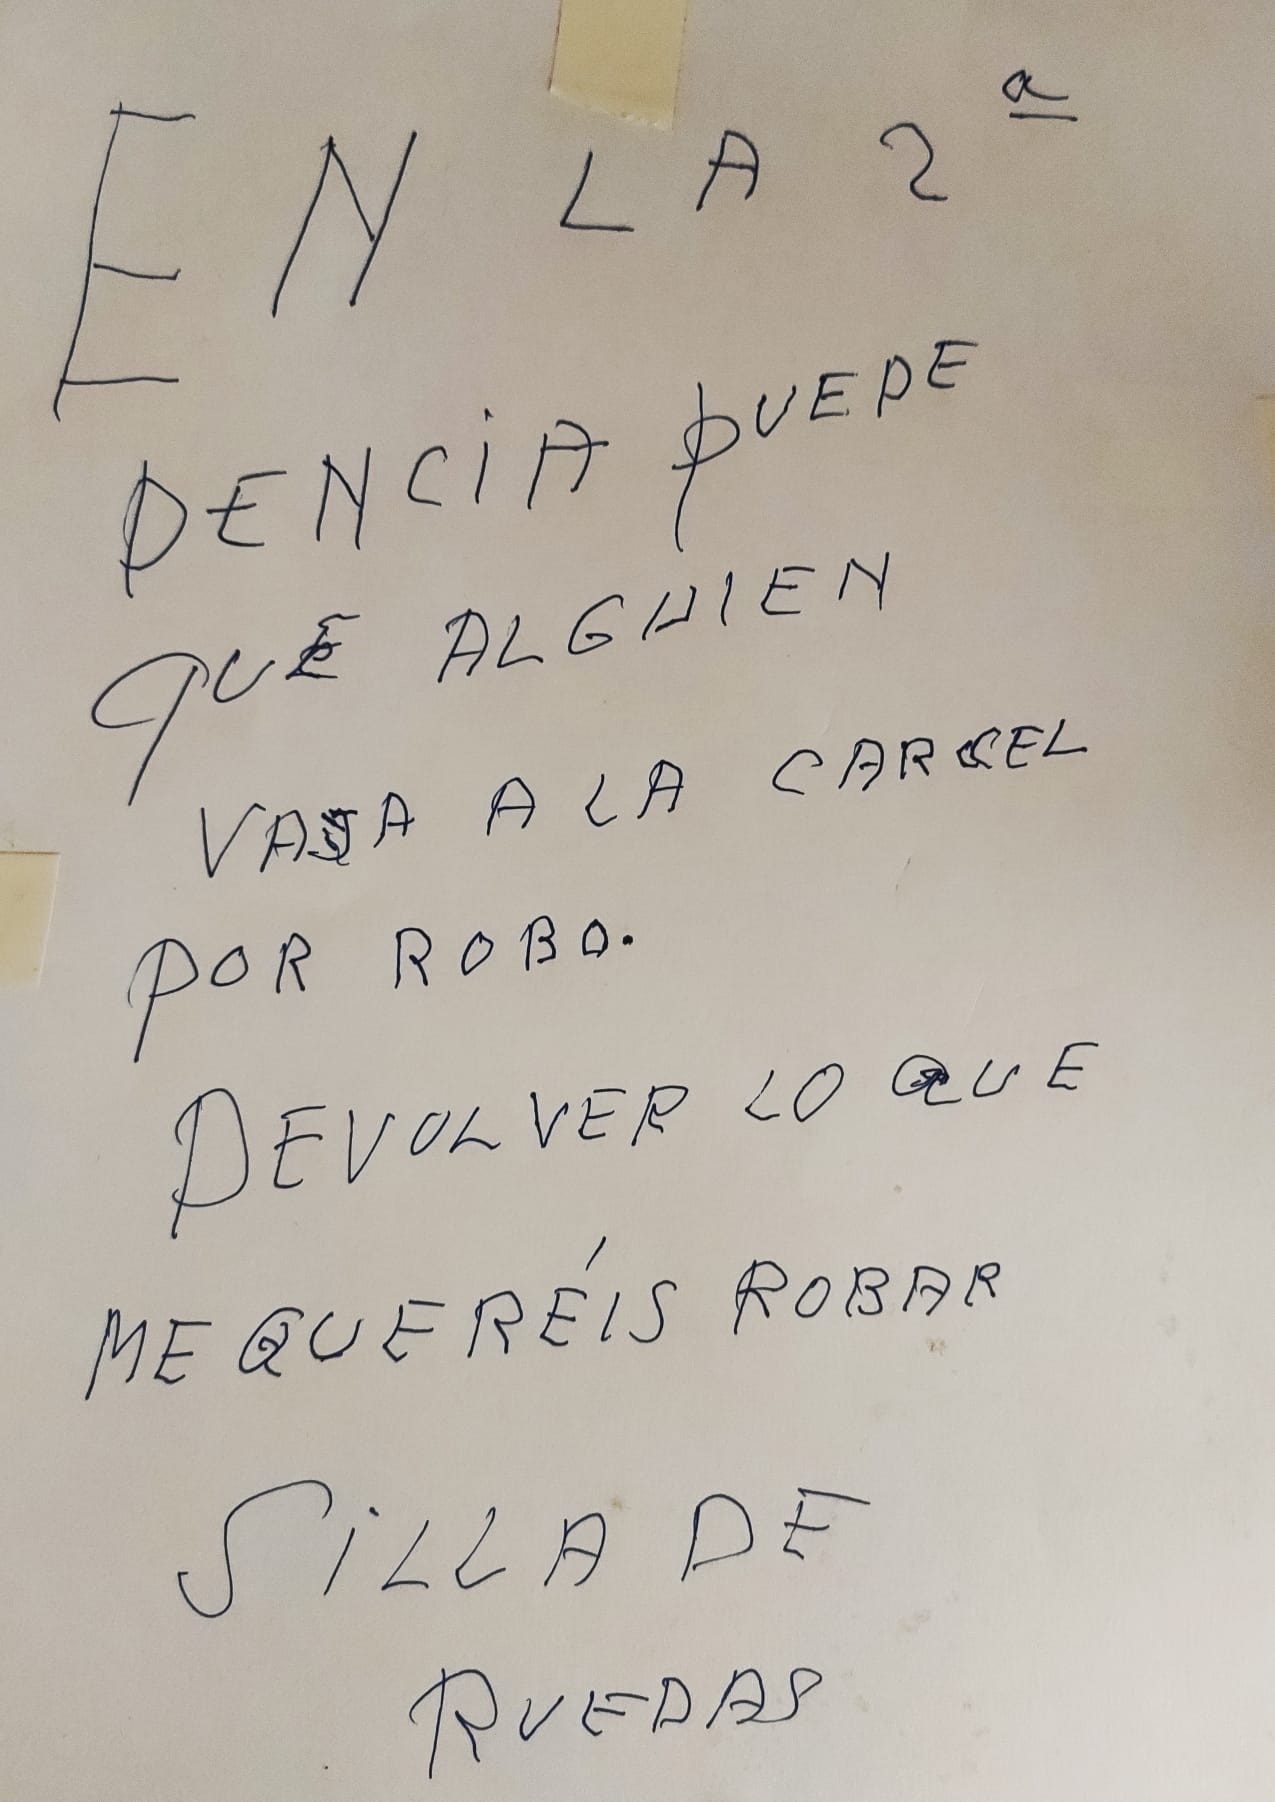 EN LA 2ª
DENCIA PUEDE
QUE ALGUIEN
VAYA A LA CARCEL
POR ROBO.
DEVOLVER LO QUE
ME QUERÉIS ROBAR
SILLA DE
RUEDAS